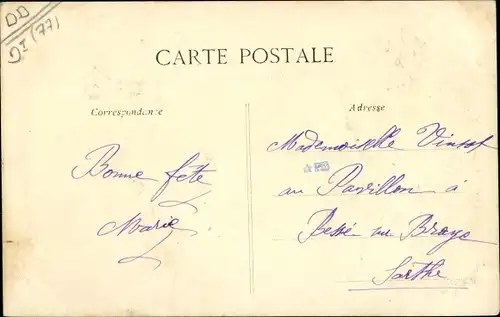 DD
DT (77)
CARTE POSTALE
Correspondance
Adresse
Bonne fête
Marie
Mademoiselle Vinsot
au Pavillon à
Bessé sur Braye
Sarthe